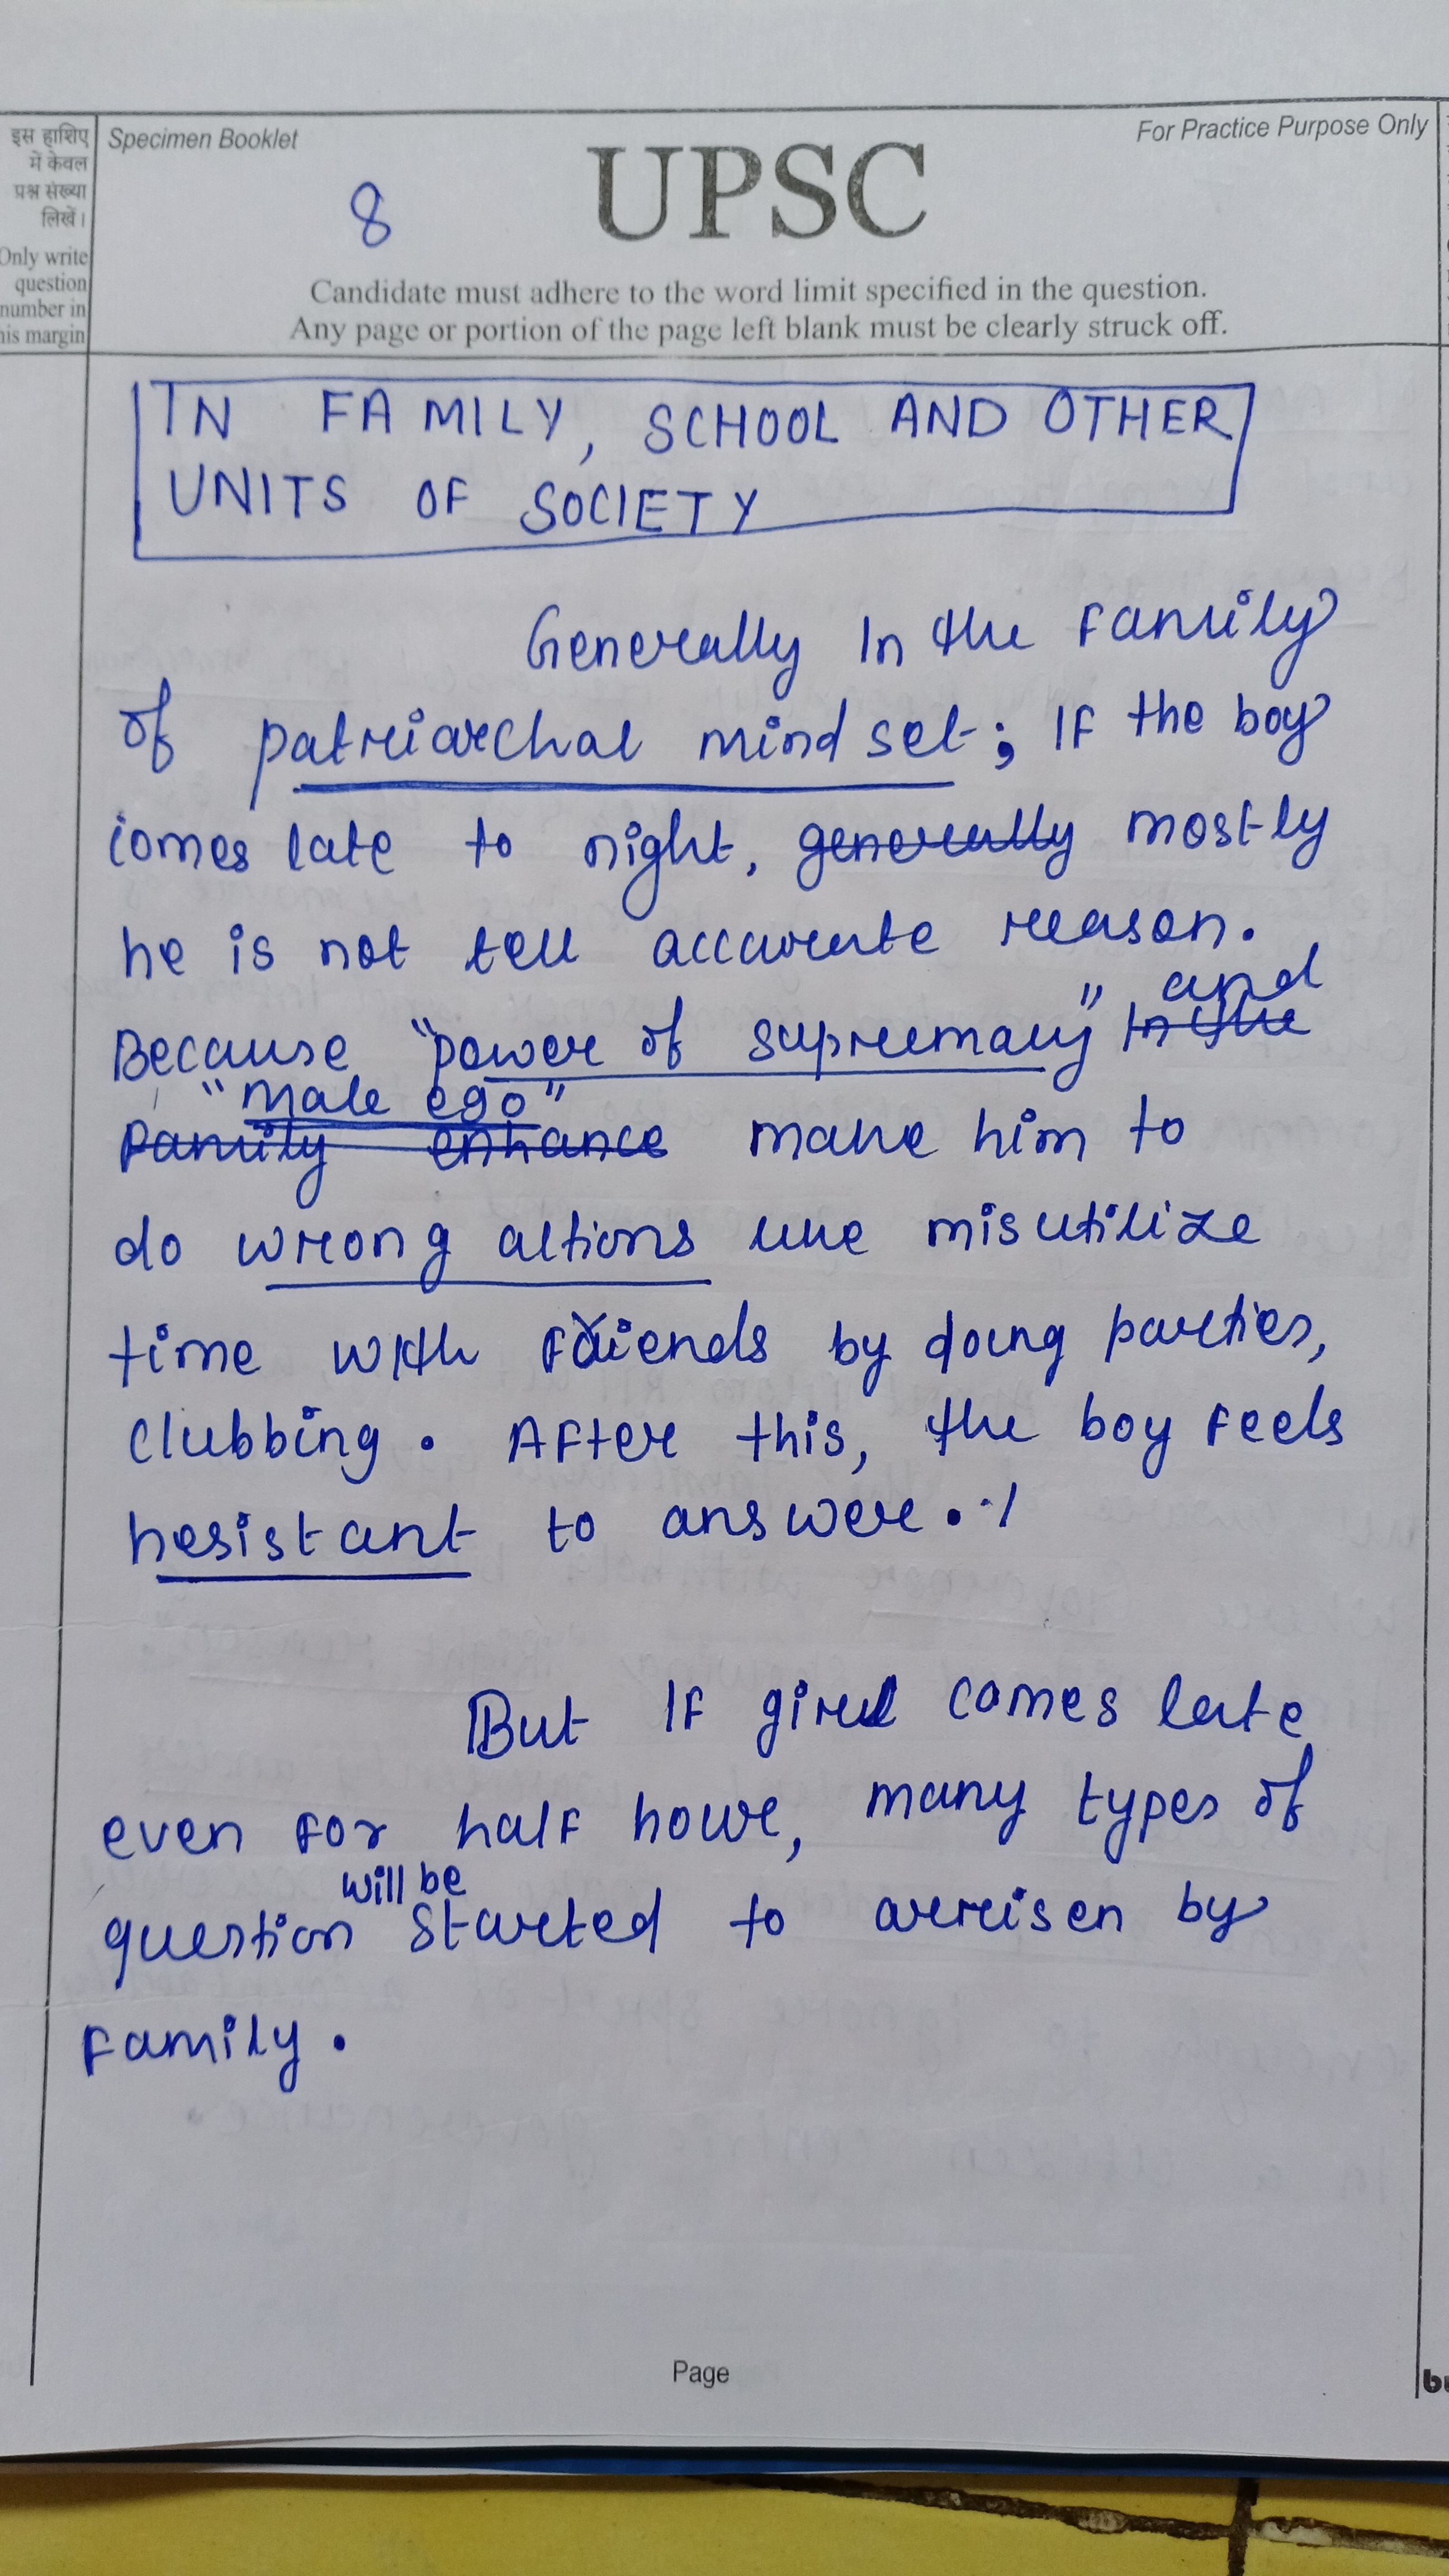 इस हाशिए
में केवल
प्रश्न संख्या
लिखें।
Only write
question
number in
his margin
Specimen Booklet
For Practice Purpose Only
8
UPSC
Candidate must adhere to the word limit specified in the question.
Any page or portion of the page left blank must be clearly struck off.
IN FAMILY, SCHOOL AND OTHER
UNITS OF SOCIETY
Generally In the Family
of patriarchal mind set; IF the boy
comes late to night, generally mostly
he is not tell accurate reason.
Because "power of supremacy" and In the
"Male ego"
Family enhance make him to
do wrong actions like misutilize
time with friends by doing parties,
clubbing. After this, the boy Feels
hesistant to answere.
But IF girl comes late
even for half houre, many types of
question will be started to arreisen by
Family.
Page